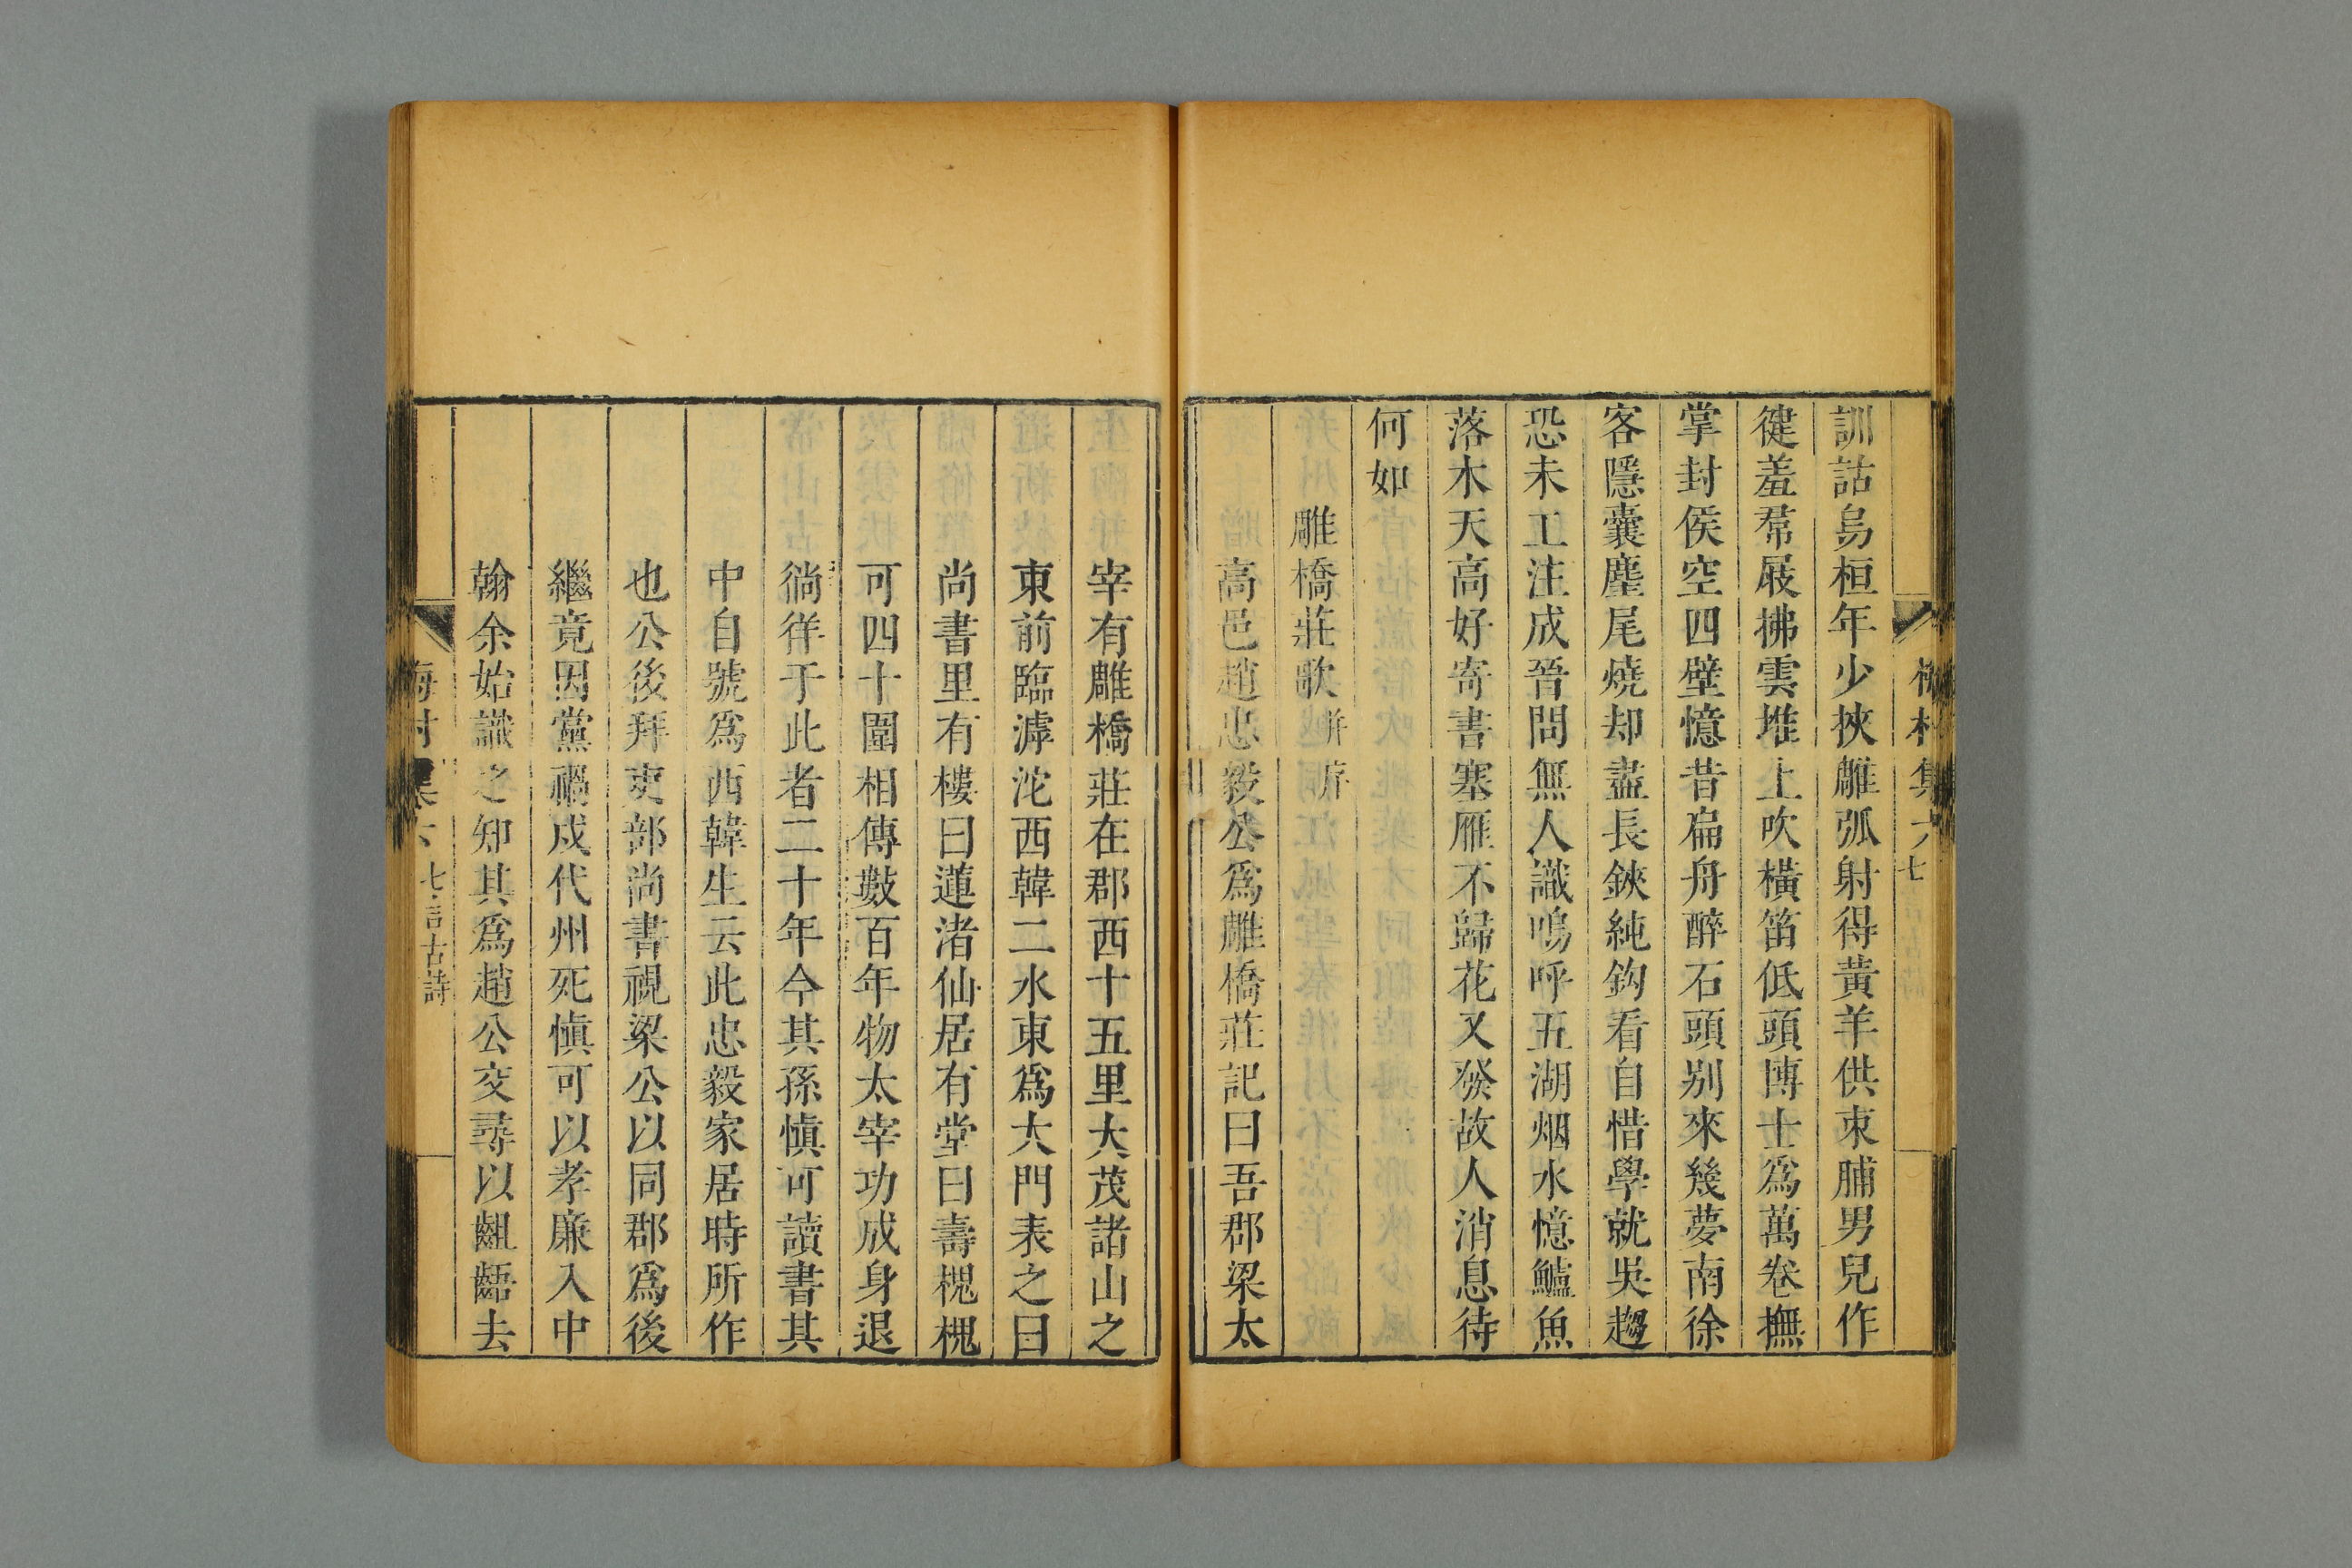 梅村集 六 七
訓詁島桓年少挾雕弧射得黃羊供束脯男兒作
健羞帬屐拂雲堆上吹橫笛低頭博士爲萬卷撫
掌封侯空四壁憶昔扁舟醉石頭别來幾夢南徐
客隱囊麈尾燒却盡長鋏純鈎看自惜學就吳趨
恐未工注成晉問無人識嗚呼五湖烟水憶鱸魚
落木天高好寄書塞雁不歸花又發故人消息待
何如
雕橋莊歌 并序
高邑趙忠毅公爲雕橋莊記曰吾郡梁太
宰有雕橋莊在郡西十五里大茂諸山之
東前臨滹沱西韓二水東爲大門表之曰
尚書里有樓曰蓮渚仙居有堂曰壽槐槐
可四十圍相傳數百年物太宰功成身退
徜徉于此者二十年今其孫愼可讀書其
中自號爲西韓生云此忠毅家居時所作
也公後拜吏部尚書視梁公以同郡爲後
繼竟因黨禍戍代州死愼可以孝廉入中
翰余始識之知其爲趙公交尋以齟齬去
梅村集 六 七言古詩